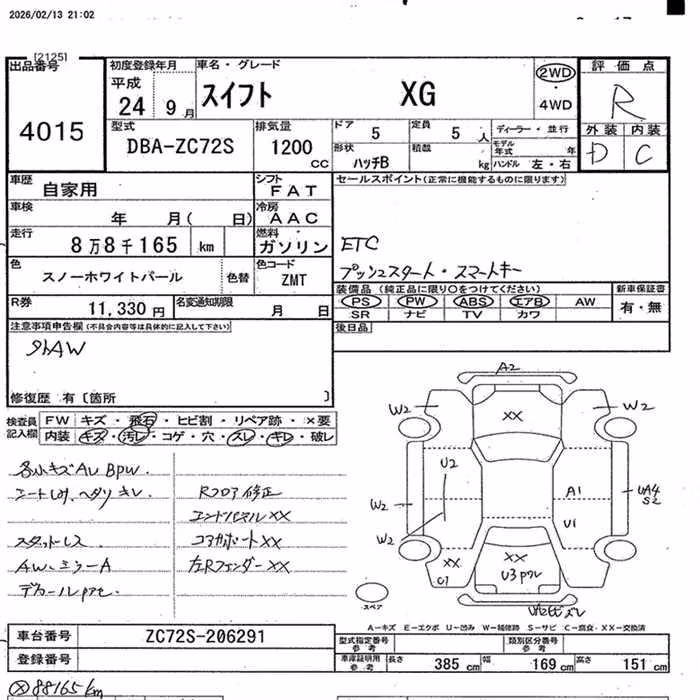 2026/02/13 21:02
[2125]
出品番号 4015
初度登録年月 平成 24 9月
車名・グレード スイフト XG
2WD
4WD
評価点 R
外装 内装
D C
型式 DBA-ZC72S
排気量 1200 CC
ドア 5
定員 5 人
形状 ハッチB
積載 kg
ディーラー・並行
モデル年式 年
ハンドル 左・右
車歴 自家用
シフト FAT
車検 年 月( 日)
冷房 AAC
走行 8万8千165 km
燃料 ガソリン
色 スノーホワイトパール 色替
色コード ZMT
R券 11,330円
名変通知期限 月 日
セールスポイント(正常に機能するものに限ります)
ETC
プッシュスタート・スマートキー
装備品(純正品に限り○をつけてください)
PS PW ABS エアB AW
SR ナビ TV カワ
新車保証書
有・無
後日品
注意事項申告欄(不具合内容等は具体的に記入して下さい)
外AW
修復歴 有〔箇所 〕
検査員記入欄
FW キズ・飛石・ヒビ割・リペア跡・×要
内装 キズ・汚レ・コゲ・穴・スレ・キレ・破レ
各小キズAU BPW.
シートしみ、ヘタリ キレ.
スタットレス
AW、ミラーA
Rフロア修正
エンドパネルXX
コアサポートXX
左RフェンダーXX
A2
W2
XX
W2
U2
W2
W2
A1
U1
UA4
S2
XX
U1
XX
U3 PW
スペア
A－キズ E－エクボ U－凹み W－補修跡 S－サビ C－腐食・XX－交換済
車台番号 ZC72S-206291
登録番号
型式指定番号 参考
類別区分番号 参考
車庫証明用 参考 長さ 385 cm 幅 169 cm 高さ 151 cm
88165 km